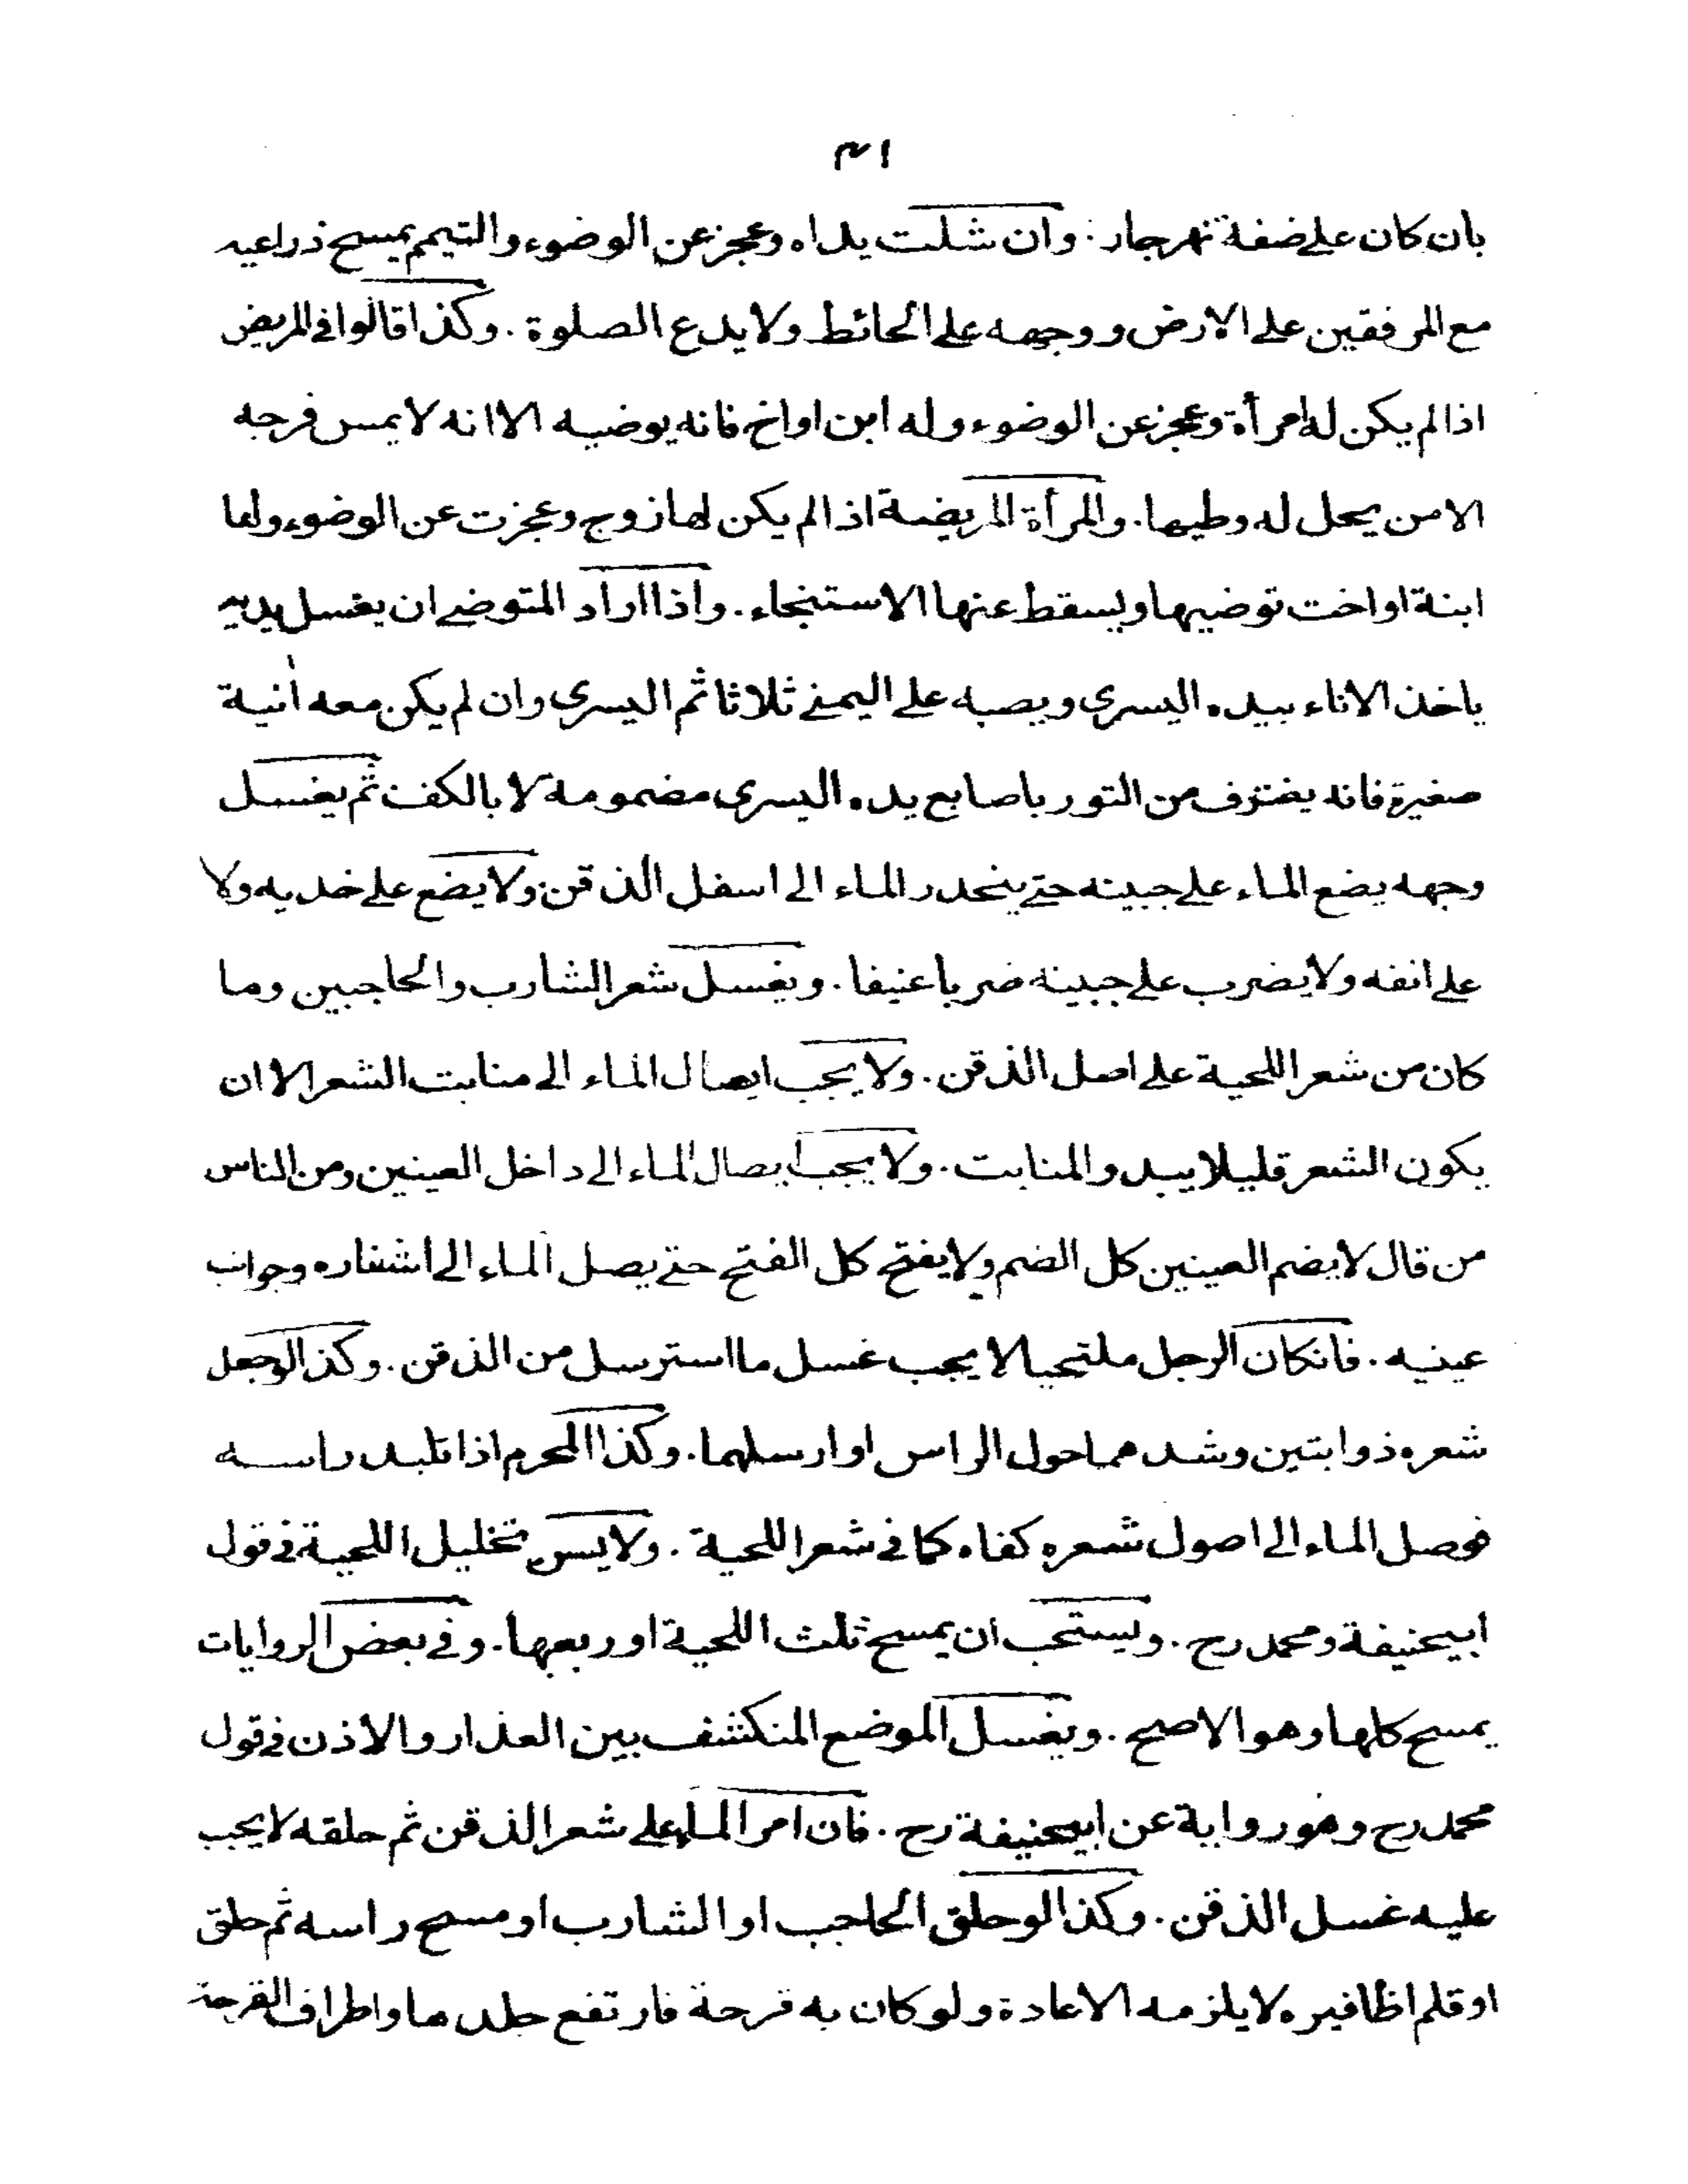 ٣١
بان كان على ضفة نهر جار . وان شلت يداه وعجز عن الوضوء والتيمم يمسح ذراعيه
مع المرفقين على الارض ووجهه على الحائط ولا يدع الصلوة . وكذا قالوا فى المريض
اذا لم يكن له امرأة وعجز عن الوضوء وله ابن او اخ فانه يوضيه الا انه لا يمس فرجه
الا من يحل له وطيها . والمرأة المريضة اذا لم يكن لها زوج وعجزت عن الوضوء ولها
ابنة او اخت توضيها ويسقط عنها الاستنجاء . واذا اراد المتوضى ان يغسل يديه
ياخذ الاناء بيده اليسرى ويصبه على اليمنى ثلاثا ثم اليسرى وان لم يكن معه اٰنية
صغيرة فانه يغترف من التور باصابع يده اليسرى مضمومة لا بالكف ثم يغسل
وجهه يضع الماء على جبينه حتى ينحدر الماء الى اسفل الذقن ولا يضع على خديه ولا
على انفه ولا يضرب على جبينه ضربا عنيفا . ويغسل شعر الشارب والحاجبين وما
كان من شعر اللحية على اصل الذقن . ولا يجب ايصال الماء الى منابت الشعر الا ان
يكون الشعر قليلا يبدو المنابت . ولا يجب ايصال الماء الى داخل العينين ومن الناس
من قال لا يضم العينين كل الضم ولا يفتح كل الفتح حتى يصل الماء الى اشفاره وجوانب
عينيه . فانكان الرجل ملتحيا لا يجب غسل ما استرسل من الذقن . وكذا لو جعل
شعره ذوابتين وشدهما حول الراس او ارسلهما . وكذا المحرم اذا تلبد راسه
فوصل الماء الى اصول شعره كفاه كما فى شعر اللحية . ولا يسن تخليل اللحية فى قول
ابيحنيفة ومحمد رح . ويستحب ان يمسح ثلث اللحية او ربعها . وفى بعض الروايات
يمسح كلها وهو الاصح . ويغسل الموضع المنكشف بين العذار والاذن فى قول
محمد رح وهو رواية عن ابيحنيفة رح . فان امر الماء على شعر الذقن ثم حلقه لا يجب
عليه غسل الذقن . وكذا لو حلق الحاجب او الشارب او مسح راسه ثم حلق
او قلم اظافيره لا يلزمه الاعادة ولو كان به قرحة فارتفع جلدها واطراف القرحة